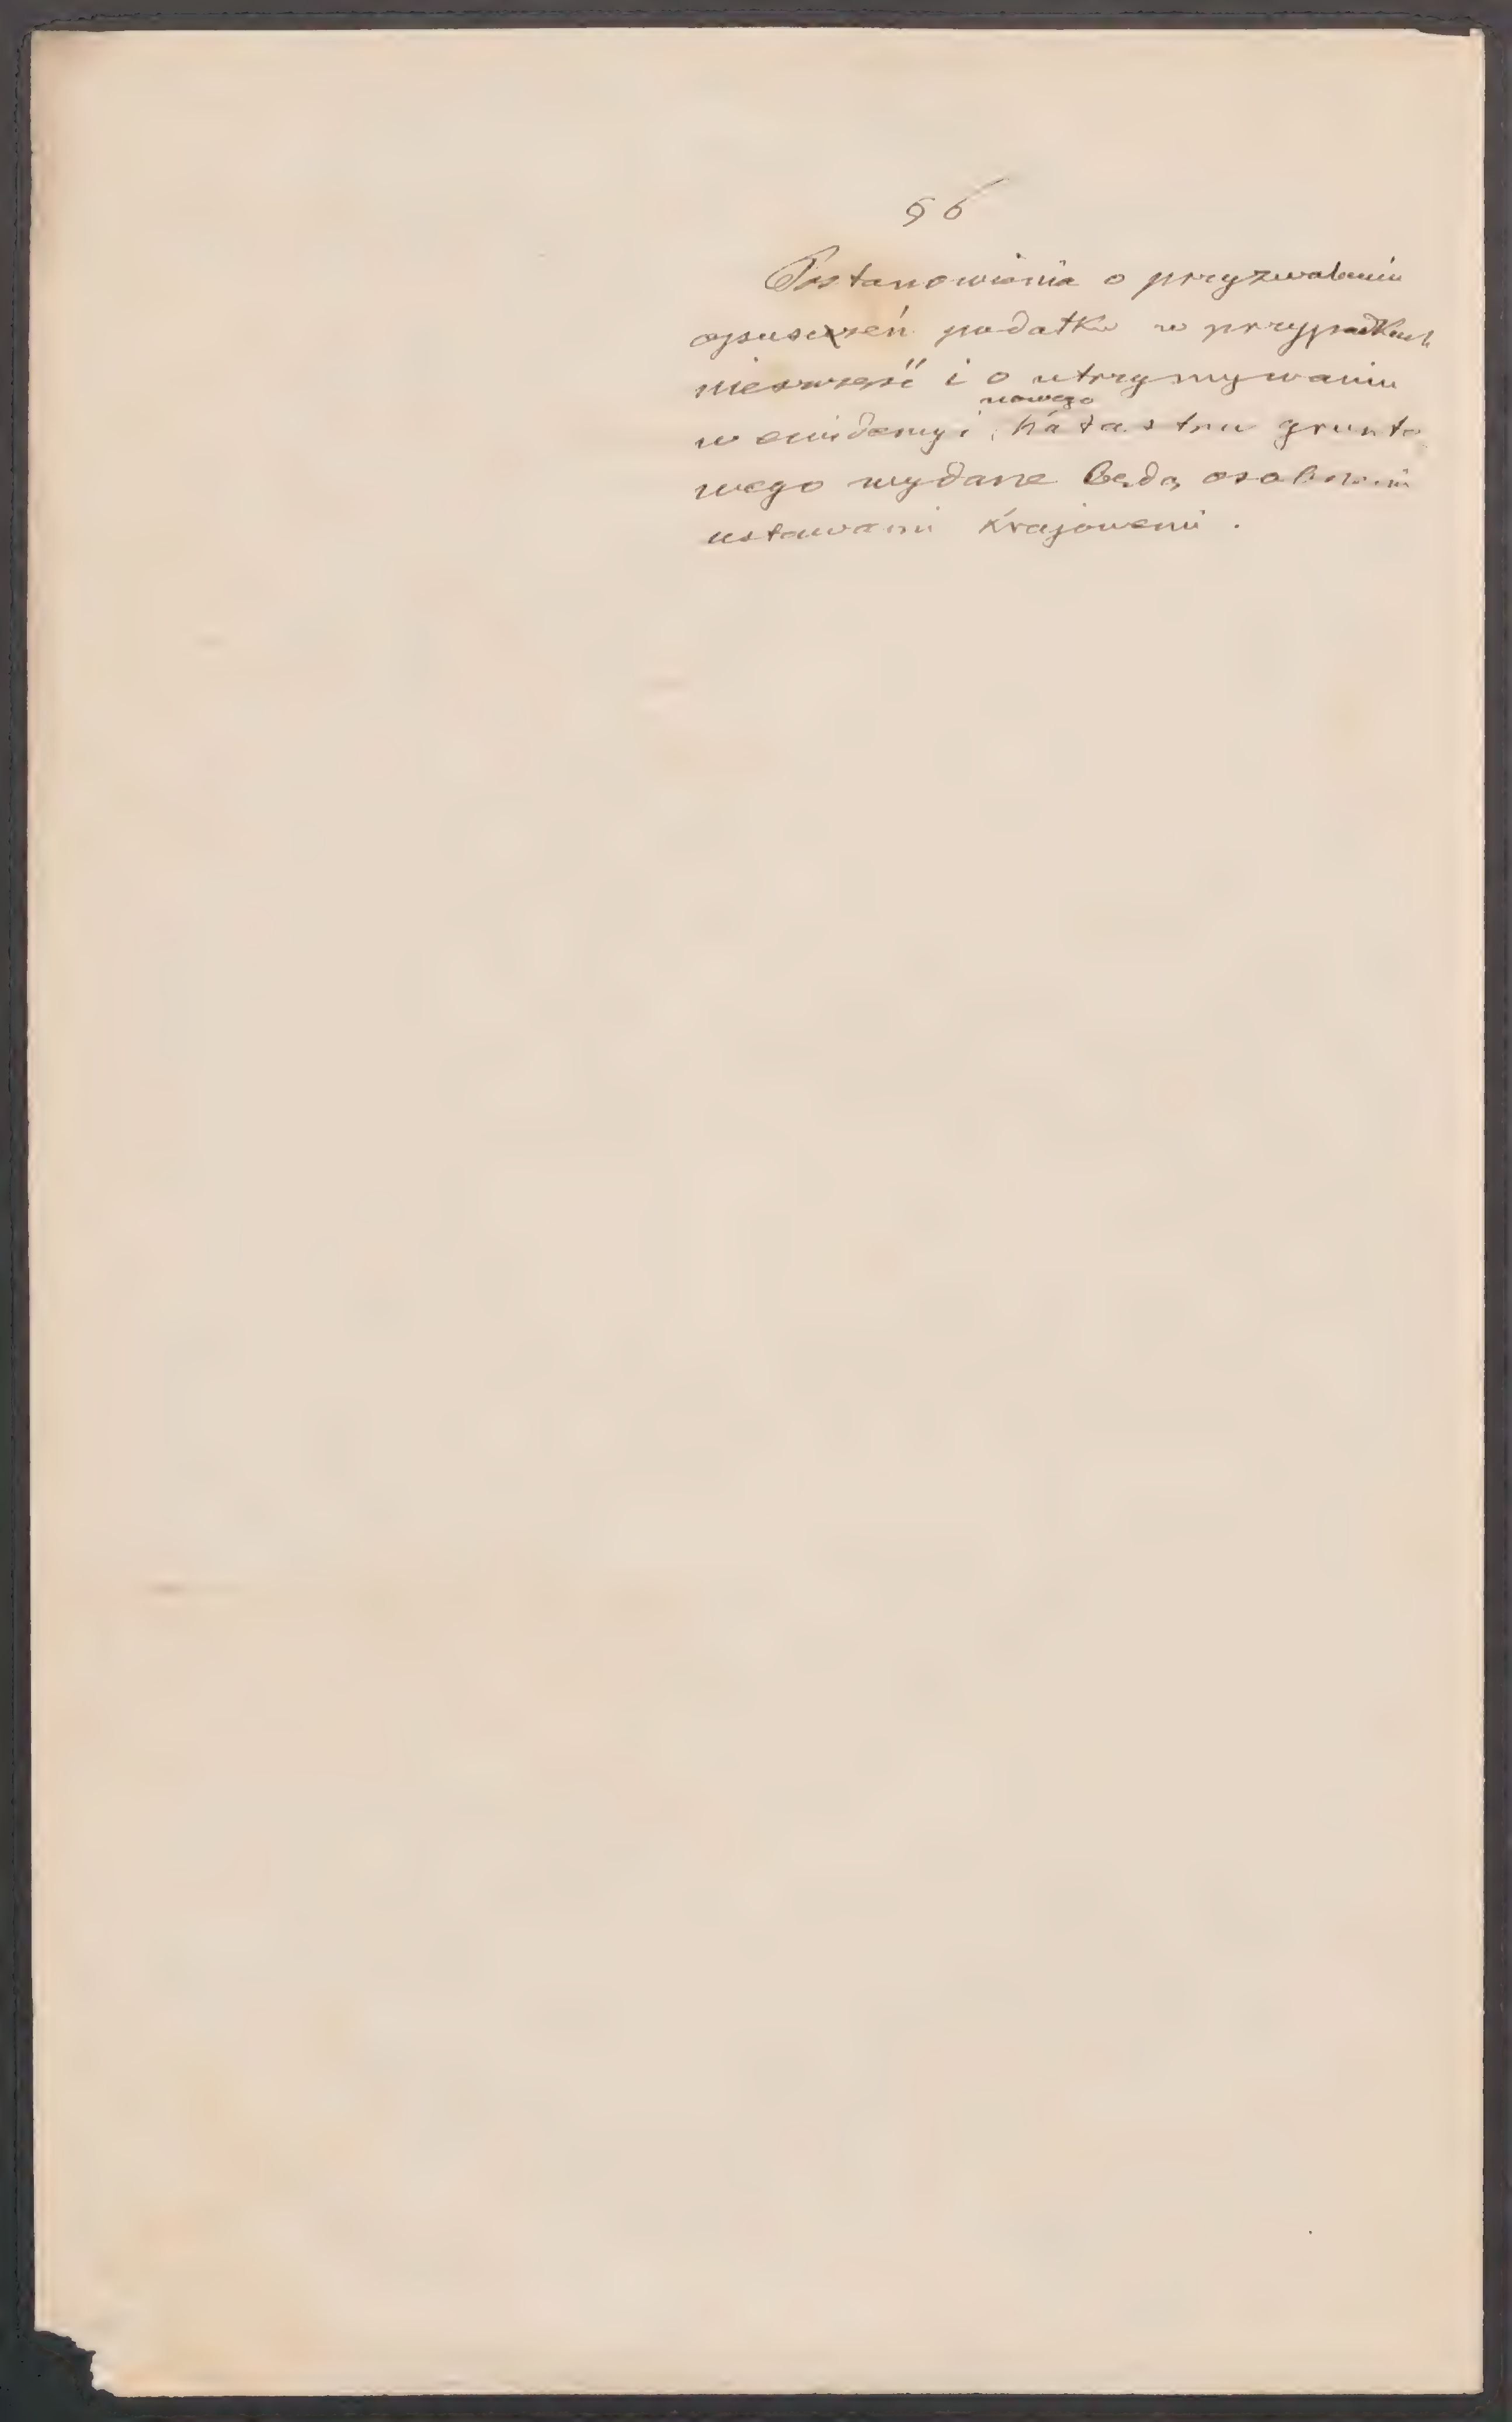 56
Postanowienia o przyzwalaniu
opuszczeń podatku w przypadkach
nieszczęść i o utrzymywaniu
nowego
w ewidencyi katastru grunto
wego wydane będą osobnemi
ustawami krajowemi.